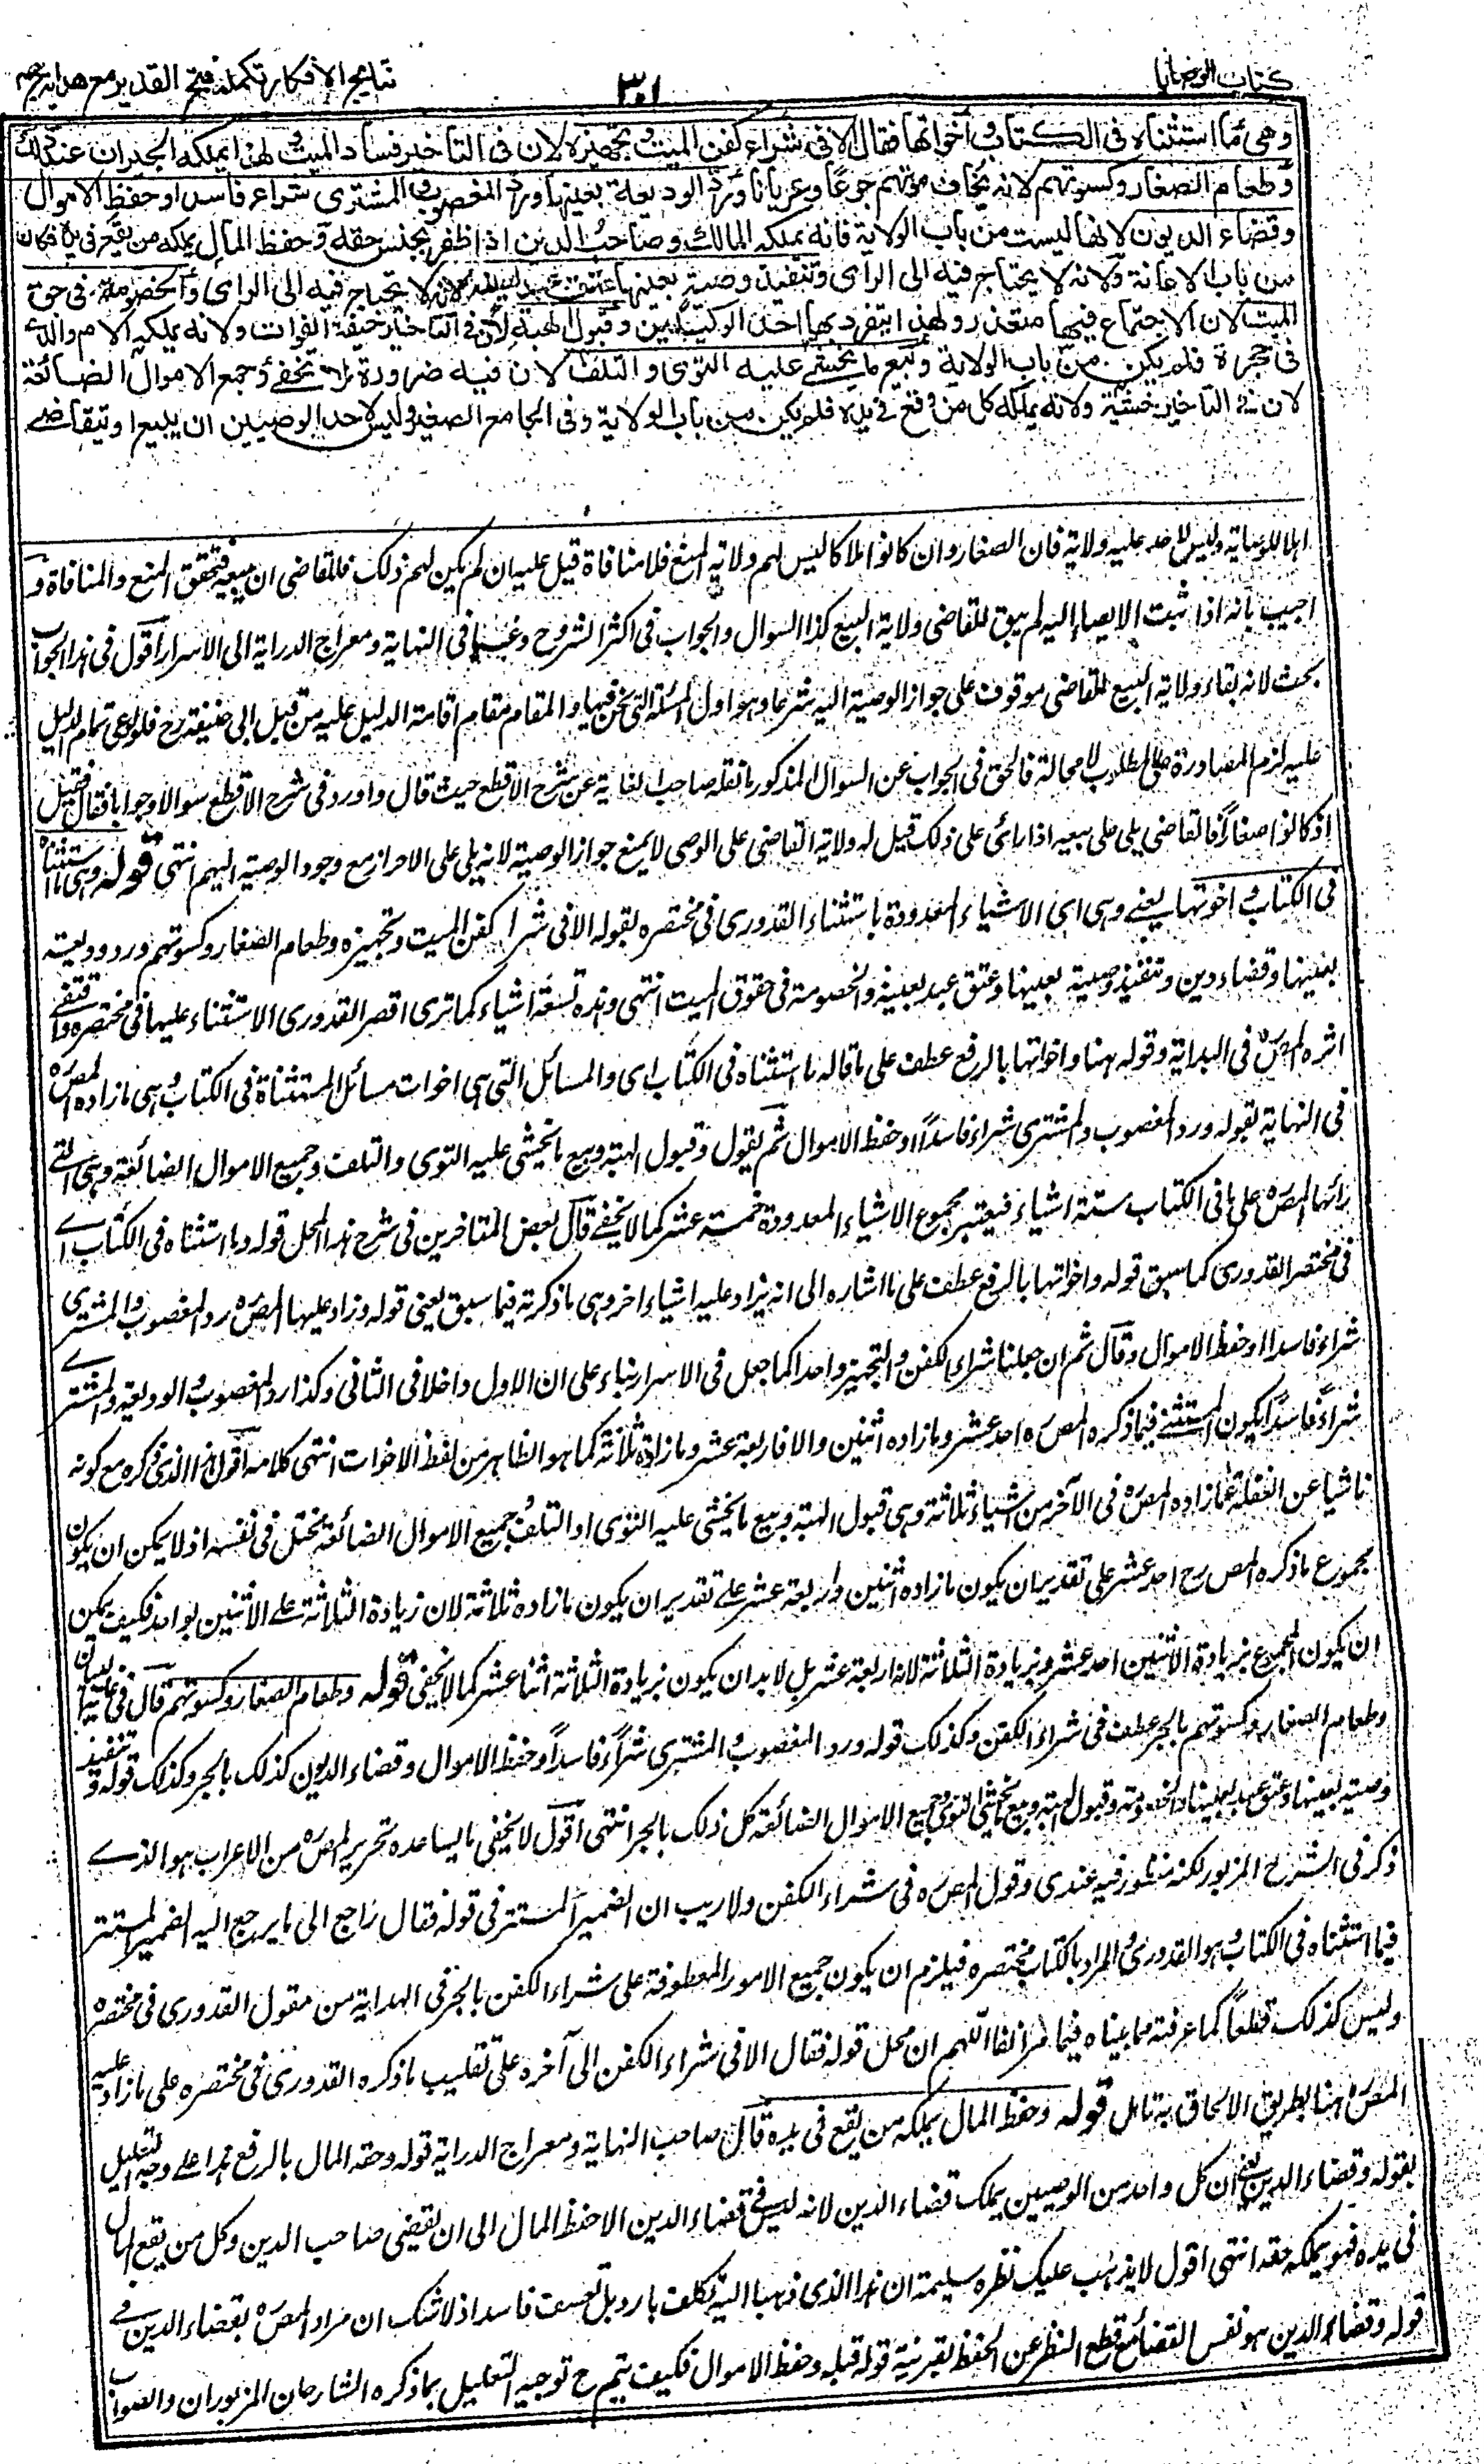 كتاب الوصايا
٣٠١
نتايج الافكار تكملة فتح القدير مع هدايه
وهى ما استثناه فى الكتاب واخواتها فقال الا فى شراء كفن الميت وتجهيزه لان فى التاخير فساد الميت ولهذا يملكه الجيران عند ذلك
وطعام الصغار وكسوتهم لانه يخاف موتهم جوعا وعريانا ورد الوديعة بعينها ورد المغصوب والمشترى شراء فاسدا وحفظ الاموال
وقضاء الديون لانها ليست من باب الولاية فانه يملكه المالك وصاحب الدين اذا ظفر بجنس حقه وحفظ المال يملكه من يقع فى يده فكان
من باب الاعانة ولانه لا يحتاج فيه الى الراى وتنفيذ وصية بعينها وعتق عبد بعينه لانه لا يحتاج فيه الى الراى والخصومة فى حق
الميت لان الاجتماع فيها متعذر ولهذا ينفرد بها احد الوكيلين وقبول الهبة لان فى التاخير خيفة الفوات ولانه يملكه الام والذى
فى حجره فلم يكن من باب الولاية وبيع ما يخشى عليه التوى والتلف لان فيه ضرورة لا تخفى وجمع الاموال الضائعة
لان فى التاخير خشية ولانه يملكه كل من وقع فى يده فلم يكن من باب الولاية وفى الجامع الصغير وليس لاحد الوصيين ان يبيع او يتقاضى
اهلا للوصاية وليس لاحد عليه ولاية فان الصغار وان كانوا ملاكا ليس لهم ولاية المنع فلا منافاة قيل عليه ان لم يكن لهم ذلك فللقاضى ان يبيعه فتحقق المنع والمنافاة و
اجيب بانه اذا ثبت الايصاء اليه لم يبق للقاضى ولاية البيع كذا السوال والجواب فى اكثر الشروح وعزيا فى النهاية ومعراج الدراية الى الاسرار اقول فى هذا الجواب
بحث لانه بقاء ولاية البيع للقاضى موقوف على جواز الوصية اليه شرعا وهو اول المسئلة التى نحن فيها والمقام مقام اقامة الدليل عليه من قبل ابى حنيفة رح فلو ادعى تمام الدليل
عليه لزم المصادرة على المطلوب لا محالة فالحق فى الجواب عن السوال المذكور ما نقله صاحب الغاية عن شرح الاقطع حيث قال واورد فى شرح الاقطع سوالا وجوابا فقال فقيل
اذ كانوا صغارا فالقاضى يلى على بيعه اذا رائى على ذلك قيل له ولاية القاضى على الوصى لا يمنع جواز الوصية لانه يلى على الاحرار مع وجود الوصية اليهم انتهى قوله وهى ما استثناه
فى الكتاب واخوتها يعنے وهى اى الاشياء المعدودة باستثناء القدورى فى مختصره بقوله الا فى شراء كفن الميت وتجهيزه وطعام الصغار وكسوتهم ورد وديعة
بعينها وقضاء دين وتنفيذ وصية بعينها وعتق عبد بعينه والخصومة فى حقوق الميت انتهى وهذه تسعة اشياء كما ترى اقصر القدورى الاستثناء عليها فى مختصره واقتفى
اثره المصره فى البداية وقوله هنا واخواتها بالرفع عطف على ما قاله ما استثناه فى الكتاب اى والمسائل التى هى اخوات مسائل المستثناة فى الكتاب وهى ما زاده المصره
فى النهاية بقوله ورد المغصوب والمشترى شراء فاسدا وحفظ الاموال ثم يقول وقبول الهبة وبيع ما يخشى عليه التوى والتلف وجميع الاموال الضائعة وهى التے
زائها المصره على ما فى الكتاب ستة اشياء فيعتبر مجموع الاشياء المعدودة خمسة عشر كما لا يخفے قال بعض المتاخرين فى شرح هذا المحل قوله وما استثناه فى الكتاب اے
فى مختصر القدورى كما سبق قوله واخواتها بالرفع عطف على ما اشاره الى انه يزاد عليه اشياء اخر وهى ما ذكرته فيما سبق يعنى قوله وزاد عليها المصره رد المغصوب والمشترى
شراء فاسدا وحفظ الاموال وقال ثم ان جعلنا شراء الكفن والتجهيز واحدا كما جعل فى الاسرار بناء على ان الاول داخلا فى الثانى وكذا رد المغصوب والوديعة والمشترے
شراء فاسدا يكون المستثنے فيما ذكره المصره احد عشر وما زاده اثنين والا فاربعة عشر وما زاده ثلاثة كما هو الظاهر من لفظ الاخوات انتهى كلامه اقول هذا الذى ذكره مع كونه
ناشيا عن الغفلة عما زاده المصره فى الآخر من اشياء ثلاثة وهى قبول الهبة وبيع ما يخشى عليه التوى او التلف وجميع الاموال الضائعة مختل فى نفسه اذ لا يمكن ان يكون
مجموع ما ذكره المص رح احد عشر على تقدير ان يكون ما زاده اثنين واربعة عشر علے تقدير ان يكون ما زاده ثلاثة لان زيادة الثلاثة علے الاثنين بواحد فكيف يمكن
ان يكون المجموع بزيادة الاثنين احد عشر وبزيادة الثلاثة لانه اربعة عشر بل لا بد ان يكون بزيادة الثلاثة اثنا عشر كما لا يخفى قوله وطعام الصغار وكسوتهم قال فى غاية البيان
وطعام الصغار وكسوتهم بالجر عطف فى شراء الكفن وكذلك قوله ورد المغصوب والمشترى شراء فاسدا وحفظ الاموال وقضاء الديون كذلك بالجر وكذلك قوله وتنفيذ
وصية بعينها وعتق عبد بعينه والخصومة وقبول الهبة وبيع ما يخشى التوى وجميع الاموال الضائعة كل ذلك بالجر انتهى اقول لا يخفى ما يساعده تحرير المصره من الاعراب هو الذے
ذكر فى الشرح المزبور لكنه منظور فيه عندى وقول المصره فى شراء الكفن ولا ريب ان الضمير المستتر فى قوله فقال راجع الى ما يرجع اليه الضمير المستتر
فيما استثناه فى الكتاب وهو القدورى والمراد بالكتاب مختصره فيلزم ان يكون جميع الامور المعطوفة على شراء الكفن بالجر فى الهداية من مقول القدورى فى مختصره
وليس كذلك قطعا كما عرفته مما بيناه فيما مر انفا اللهم ان محل قوله فقال الا فى شراء الكفن الى آخره على تغليب ما ذكره القدورى فى مختصره على ما زاد عليه
المصره هنا بطريق الالحاق به تامل قوله وحفظ المال يملكه من يقع فى يده قال صاحب النهاية ومعراج الدراية قوله وحفه المال بالرفع هذا علے وجه التعليل
بقوله وقضاء الدين يعنے ان كل واحد من الوصيين يملك قضاء الدين لانه ليس فى قضاء الدين الا حفظ المال الى ان يقضى صاحب الدين وكل من يقع المال
فى يده فهو يملك حفه انتهى اقول لا يذهب عليك نظره سليمة ان هذا الذى ذهبا اليه تكلف بارد بل تعسف فاسد اذ لا شك ان مراد المصره بقضاء الدين فے
قوله وقضاء الدين هو نفس القضاء مع قطع النظر عن الحفظ بقرينة قوله قبله وحفظ الاموال فكيف يتم ح توجيه التعليل بما ذكره الشارحان المزبوران والصواب